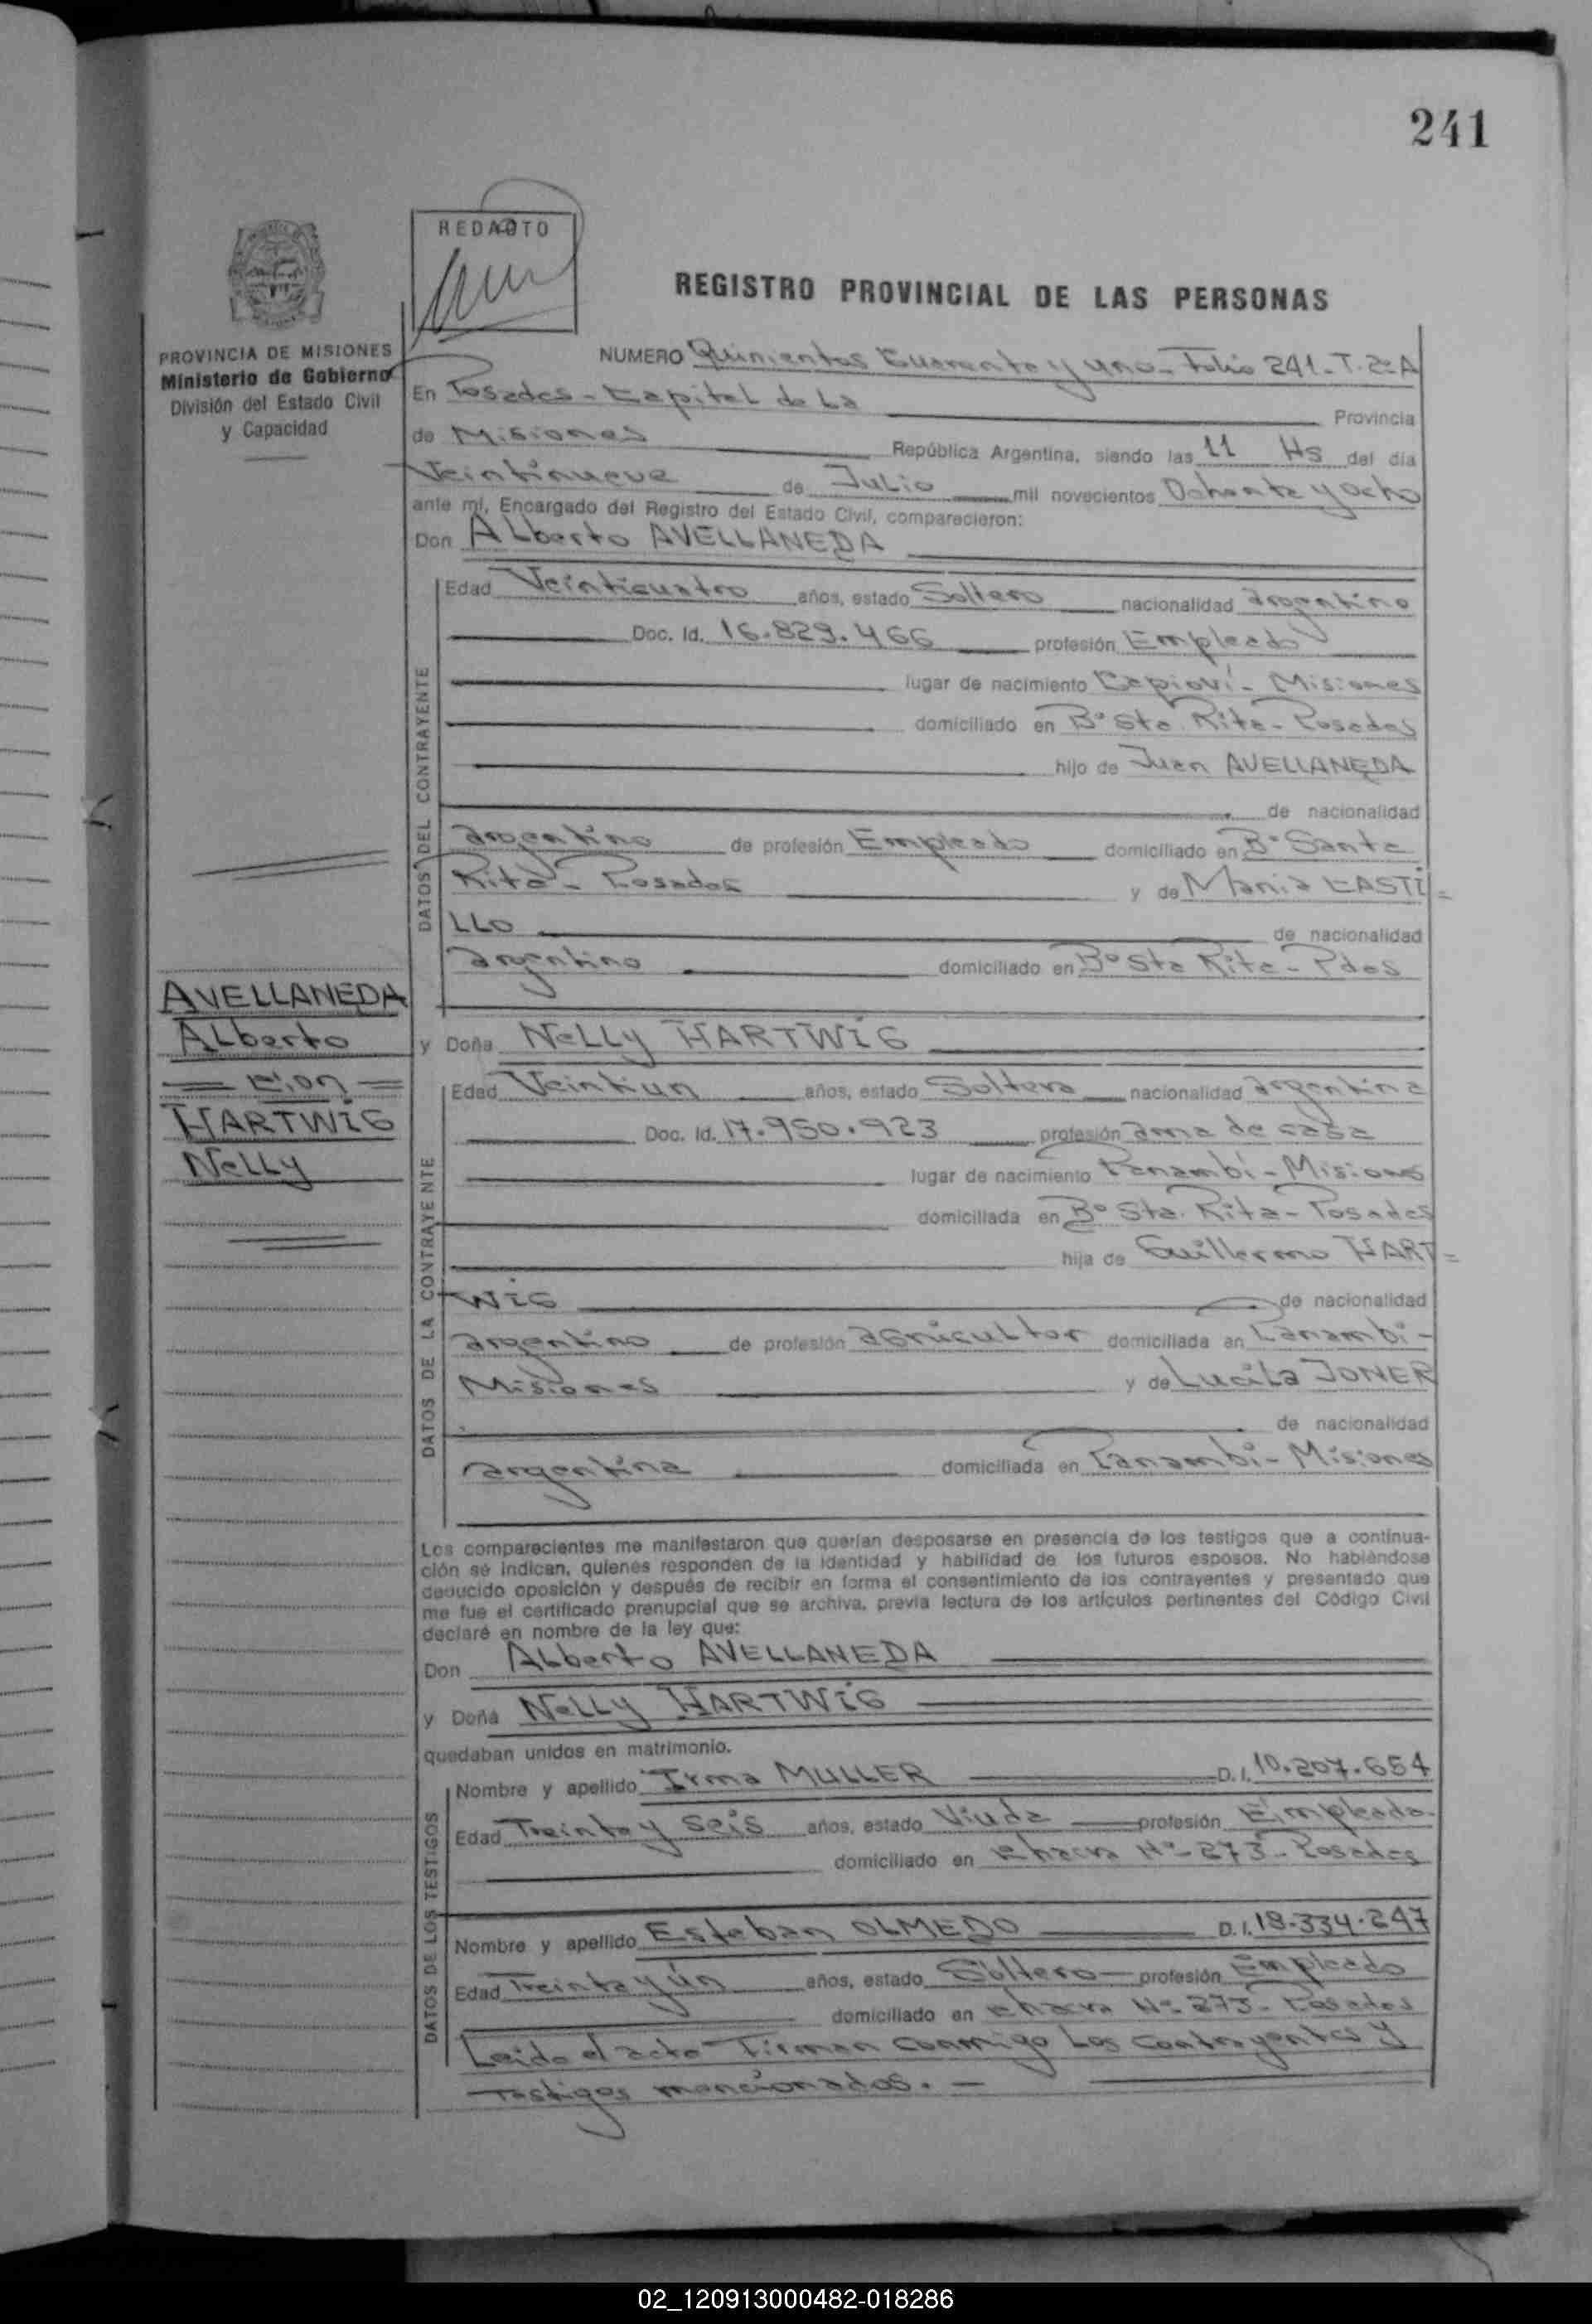 241
REDACTO
REGISTRO PROVINCIAL DE LAS PERSONAS
PROVINCIA DE MISIONES
Ministerio de Gobierno
División del Estado Civil
y Capacidad
NUMERO Quinientos Cuarenta y uno - Folio 241 - T. 2º A
En Posadas - Capital de La Provincia
de Misiones República Argentina, siendo las 11 Hs del día
Veintinueve de Julio mil novecientos Ochenta y ocho
ante mí, Encargado del Registro del Estado Civil, comparecieron:
Don Alberto AVELLANEDA
DATOS DEL CONTRAYENTE
Edad Veinticuatro años, estado Soltero nacionalidad argentino
Doc. Id. 16.829.466 profesión Empleado
lugar de nacimiento Capioví - Misiones
domiciliado en Bº Sta. Rita - Posadas
hijo de Juan AVELLANEDA
de nacionalidad
argentino de profesión Empleado domiciliado en Bº Santa
Rita - Posadas y de Maria CASTI=
LLO de nacionalidad
argentino domiciliado en Bº Sta Rita - Pdas
AVELLANEDA
Alberto
= Con =
HARTWIG
Nelly
y Doña Nelly HARTWIG
DATOS DE LA CONTRAYENTE
Edad Veintiun años, estado Soltera nacionalidad argentina
Doc. Id. 17.950.923 profesión ama de casa
lugar de nacimiento Panambí - Misiones
domiciliada en Bº Sta. Rita - Posadas
hija de Guillermo HART=
WIG de nacionalidad
argentino de profesión agricultor domiciliada en Panambí -
Misiones y de Lucila JONER
de nacionalidad
argentina domiciliada en Panambí - Misiones
Los comparecientes me manifestaron que querían desposarse en presencia de los testigos que a continua-
ción se indican, quienes responden de la identidad y habilidad de los futuros esposos. No habiéndose
deducido oposición y después de recibir en forma el consentimiento de los contrayentes y presentado que
me fue el certificado prenupcial que se archiva, previa lectura de los artículos pertinentes del Código Civil
declaré en nombre de la ley que:
Don Alberto AVELLANEDA
y Doña Nelly HARTWIG
quedaban unidos en matrimonio.
DATOS DE LOS TESTIGOS
Nombre y apellido Irma MULLER D.I. 10.207.654
Edad Treinta y seis años, estado Viuda profesión Empleada
domiciliado en Chacra Nº 273 - Posadas
Nombre y apellido Esteban OLMEDO D.I. 18.334.247
Edad Treinta y ún años, estado Soltero profesión Empleado
domiciliado en Chacra Nº 273 - Posadas
Leido el acto Firman conmigo Los contrayentes y
testigos mencionados. -
02_120913000482-018286